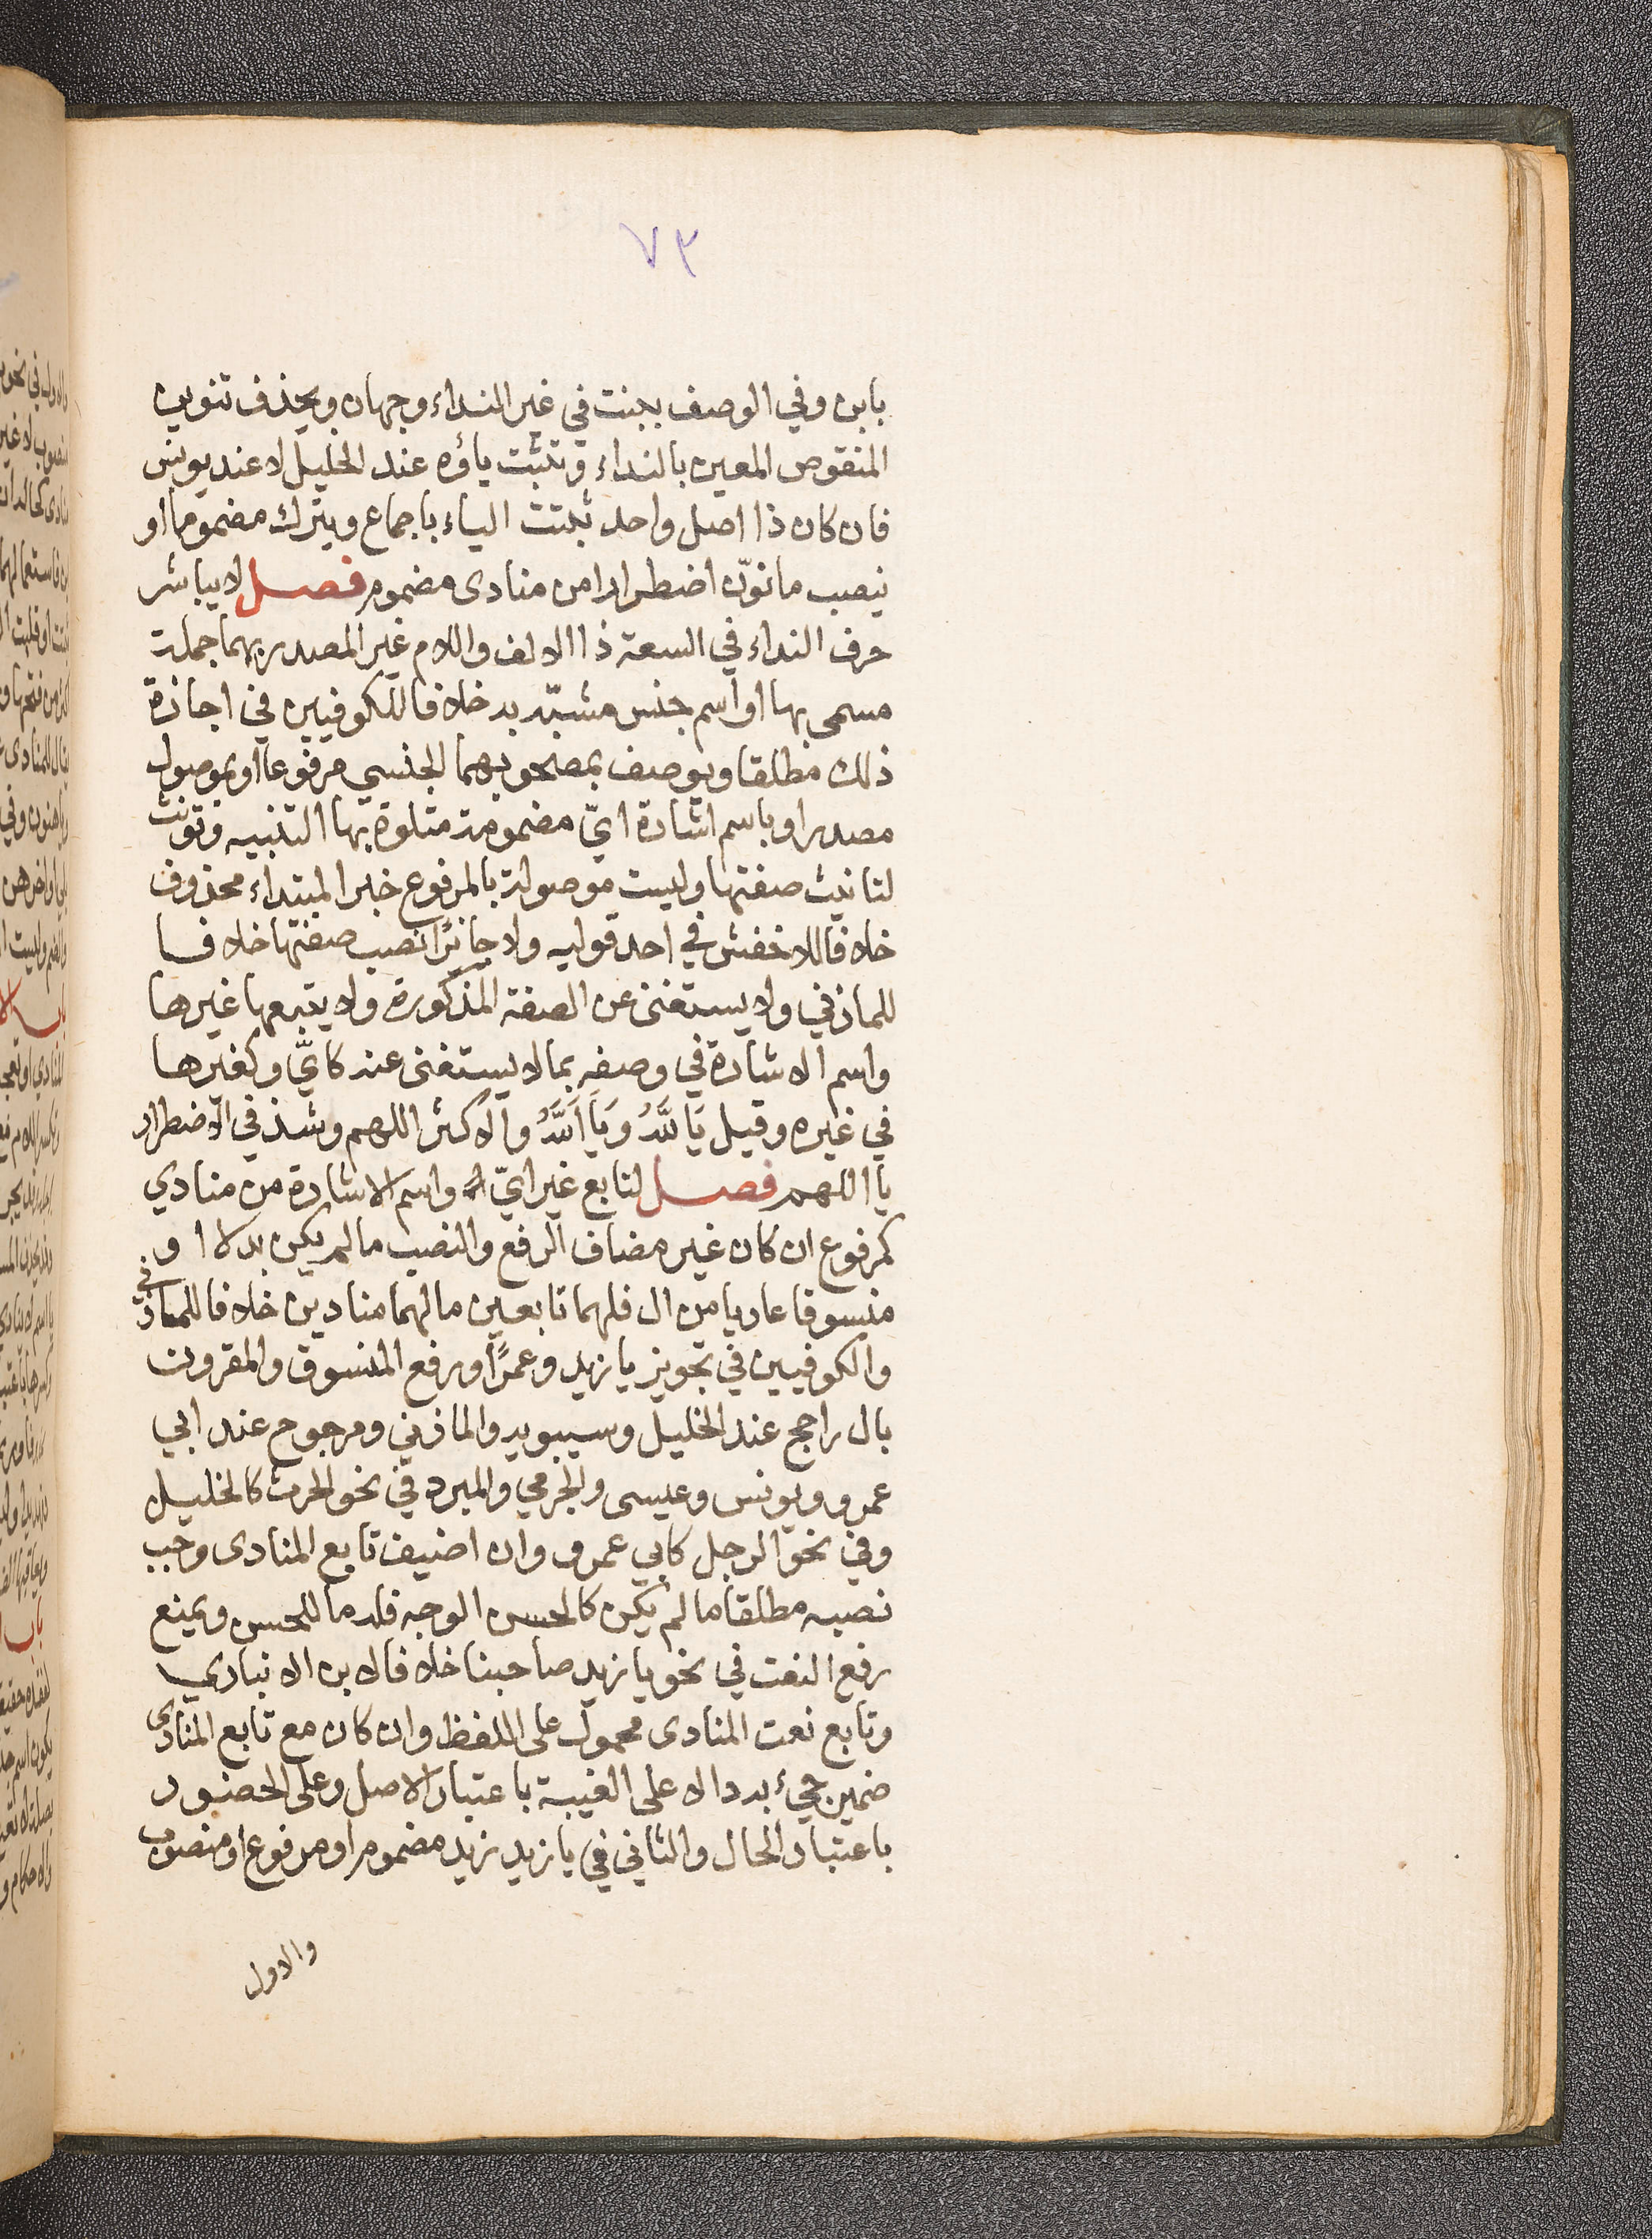 ٧٣
بابن وفي الوصف ببنت في غير النداء وجهان ويحذف تنوين
المنقوص المعين بالنداء وتثبت ياؤه عند الخليل لا عند يونس
فان كان ذا اصل واحد ثبتت الياء باجماع ويترك مضموما او
ينصب ما نوّن اضطرارا من منادى مضموم فصل لا يباشر
حرف النداء في السعة ذا الالف واللام غير المصدر بهما جملة
مسمى بها او اسم جنس مشبّه به خلافا للكوفيين في اجازة
ذلك مطلقا ويوصف بمصحوبهما الجنسي مرفوعا او بموصول
مصدر او باسم اشارة ايّ مضمومة متلوة بها التنبيه وتؤنث
لتانيث صفتها وليست موصولة بالمرفوع خبر المبتداء محذوف
خلافا للاخفش في احد قوليه ولا جائزًا نصب صفتها خلافا
للمازني ولا يستغنى عن الصفة المذكورة ولا يتبعها غيرها
واسم الاشارة في وصفه بما لا يستغنى عنه كايٍّ وكغيرها
في غيره وقيل يَا للَّهُ وَيَا اَللَّهُ والاكثر اللهم وشذ في الاضطرار
يا اللهم فصل لتابع غير ايّ واسم الاشارة من منادي
كمرفوع ان كان غير مضاف الرفع والنصب ما لم يكن بدلا او
منسوقا عاريا من ال فلهما تابعين ما لهما منادين خلافا للمازني
والكوفيين في تجويز يا زيد وعمرًا ورفع المنسوق والمقرون
بال راجح عند الخليل وسيبويه والمازني ومرجوح عند ابي
عمرو ويونس وعيسى والجرمي والمبرد في نحو الحرث كالخليل
وفي نحو الرجل كابي عمرو وان اضيف تابع المنادى وجب
نصبه مطلقا ما لم يكن كالحسن الوجه فله ما للحسن ويمنع
رفع النعت في نحو يا زيد صاحبنا خلافا لابن الانباري
وتابع نعت المنادى محمول على اللفظ وان كان مع تابع المنادى
ضمير جيء به دالا على الغيبة باعتبار الاصل وعلى الحضور
باعتبار الحال والثاني في يا زيد زيد مضموم او مرفوع او منصوب
والاول